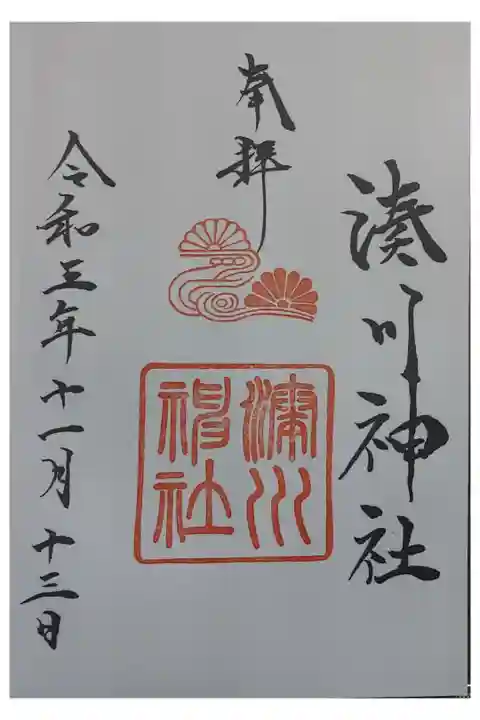 湊川神社
奉拝
湊川
神社
令和三年十一月十三日